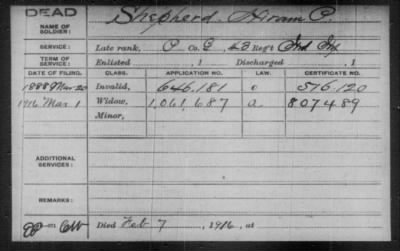 DEAD
NAME OF SOLDIER: Shepherd, Hiram P.
SERVICE: Late rank, P Co. E, 43 Reg't Ind Inf
TERM OF SERVICE: Enlisted , 1 Discharged , 1
DATE OF FILING. CLASS. APPLICATION NO. LAW. CERTIFICATE NO.
1888 Mar 20 Invalid, 646,181 576,120
1916 Mar 1 Widow, 1,061,687 a 807489
Minor,
ADDITIONAL SERVICES:
REMARKS:
Died Feb 7, 1916, at